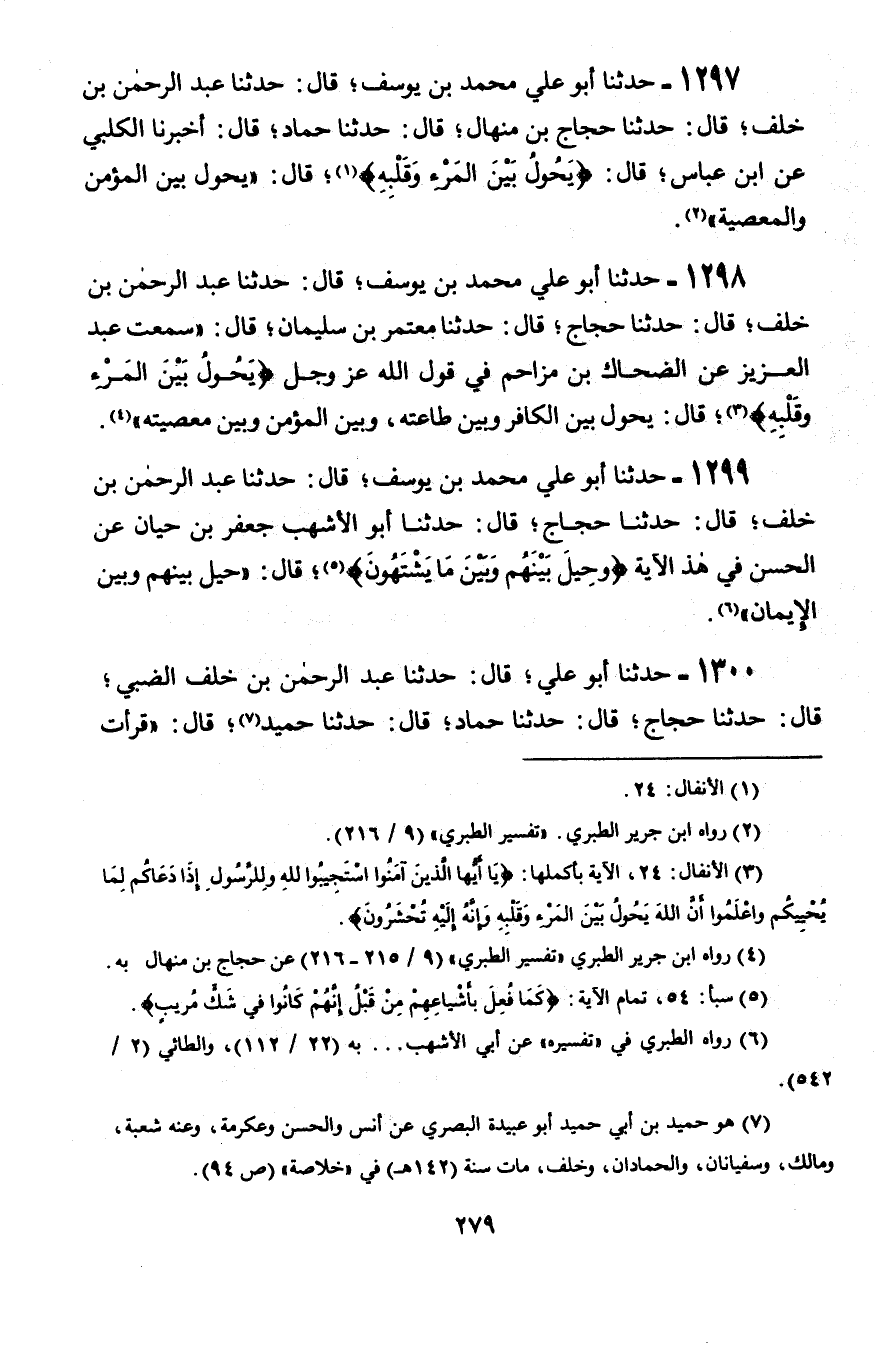 ١٢٩٧ - حدثنا أبو علي محمد بن يوسف؛ قال: حدثنا عبد الرحمٰن بن
خلف؛ قال: حدثنا حجاج بن منهال؛ قال: حدثنا حماد؛ قال: أخبرنا الكلبي
عن ابن عباس؛ قال: ﴿يَحُولُ بَيْنَ المَرْءِ وَقَلْبِهِ﴾(١)؛ قال: «يحول بين المؤمن
والمعصية»(٢).
١٢٩٨ - حدثنا أبو علي محمد بن يوسف؛ قال: حدثنا عبد الرحمٰن بن
خلف؛ قال: حدثنا حجاج؛ قال: حدثنا معتمر بن سليمان؛ قال: «سمعت عبد
العزيز عن الضحاك بن مزاحم في قول الله عز وجل ﴿يَحُولُ بَيْنَ المَرْءِ
وقَلْبِهِ﴾(٣)؛ قال: يحول بين الكافر وبين طاعته، وبين المؤمن وبين معصيته»(٤).
١٢٩٩ - حدثنا أبو علي محمد بن يوسف؛ قال: حدثنا عبد الرحمٰن بن
خلف؛ قال: حدثنا حجاج؛ قال: حدثنا أبو الأشهب جعفر بن حيان عن
الحسن في هٰذ الآية ﴿وحِيلَ بَيْنَهُم وَبَيْنَ مَا يَشْتَهُونَ﴾(٥)؛ قال: «حيل بينهم وبين
الإِيمان»(٦).
١٣٠٠ - حدثنا أبو علي؛ قال: حدثنا عبد الرحمٰن بن خلف الضبي؛
قال: حدثنا حجاج؛ قال: حدثنا حماد؛ قال: حدثنا حميد(٧)؛ قال: «قرأت
(١) الأنفال: ٢٤.
(٢) رواه ابن جرير الطبري. «تفسير الطبري» (٩ / ٢١٦).
(٣) الأنفال: ٢٤، الآية بأكملها: ﴿يَا أَيُّها الَّذينَ آمَنُوا اسْتَجِيبُوا للهِ ولِلرَّسُولِ إذَا دَعَاكُم لِمَا
يُحْيِيكُم واعْلَمُوا أنَّ اللهَ يَحُولُ بَيْنَ المَرْءِ وَقَلْبِهِ وَإنَّهُ إلَيْهِ تُحْشَرُونَ﴾.
(٤) رواه ابن جرير الطبري «تفسير الطبري» (٩ / ٢١٥ - ٢١٦) عن حجاج بن منهال به.
(٥) سبأ: ٥٤، تمام الآية: ﴿كَمَا فُعِلَ بأشْياعِهِمْ مِنْ قَبْلُ إنَّهُمْ كَانُوا في شَكٍّ مُريبٍ﴾.
(٦) رواه الطبري في «تفسيره» عن أبي الأشهب... به (٢٢ / ١١٢)، والطائي (٢ /
٥٤٢).
(٧) هو حميد بن أبي حميد أبو عبيدة البصري عن أنس والحسن وعكرمة، وعنه شعبة،
ومالك، وسفيانان، والحمادان، وخلف، مات سنة (١٤٢هـ) في «خلاصة» (ص ٩٤).
٢٧٩